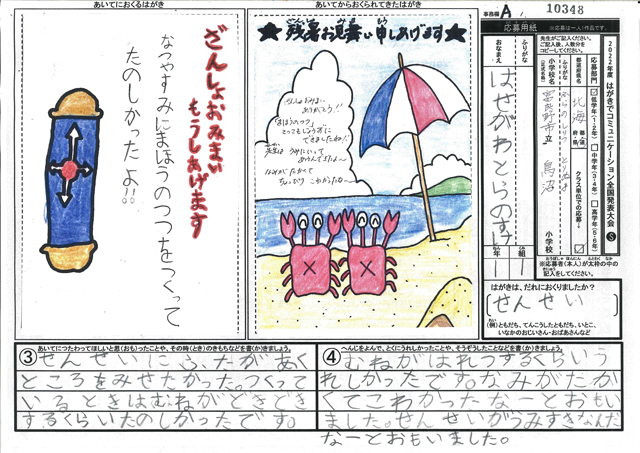 あいてにおくるはがき
ざんしょおみまい
もうしあげます
なつやすみにまほうのつつをつくって
たのしかったよ!!
あいてからおくられてきたはがき
★残暑お見舞い申しあげます★
ざんしょおみまい
ありがとう!!
「まほうのつつ」
とってもじょうずに
できましたね!!
先生は うみにいって
あそんできたよ〜
なみがたかくて
ちょっぴり こわかったな〜
事務欄 A /
10348
応募用紙
※応募は一人1作品です。
2022年度 はがきでコミュニケーション全国発表大会 S
先生がご記入ください。
ご記入後、人数分を
コピーしてください。
応募部門
低学年(1・2年)
中学年(3・4年)
高学年(5・6年)
都道府県名
北海
都道府県
クラス単位での応募
小学校名
(正式名称)
富良野市立 鳥沼
小学校
ふりがな
おなまえ
はせがわとらのすけ
1年
1組
※応募者(本人)が太枠の中の
記入をしてください。
はがきは、だれにおくりましたか?
せんせい
(例)ともだち、てんこうしたともだち、いとこ、
いなかのおじいさん・おばあさんなど
あいてにつたわってほしいと思(おも)ったことや、その時(とき)のきもちなどを書(か)きましょう。
③せんせいに、ふたがあく
ところをみせたかった。つくって
いるときはむねがどきどき
するくらいたのしかったです。
へんじをよんで、とくにうれしかったことや、そうぞうしたことなどを書(か)きましょう。
④むねがはれつするくらいう
れしかったです。なみがたか
くてこわかったなーとおもい
ました。せんせいがうみすきなんだ
なーとおもいました。